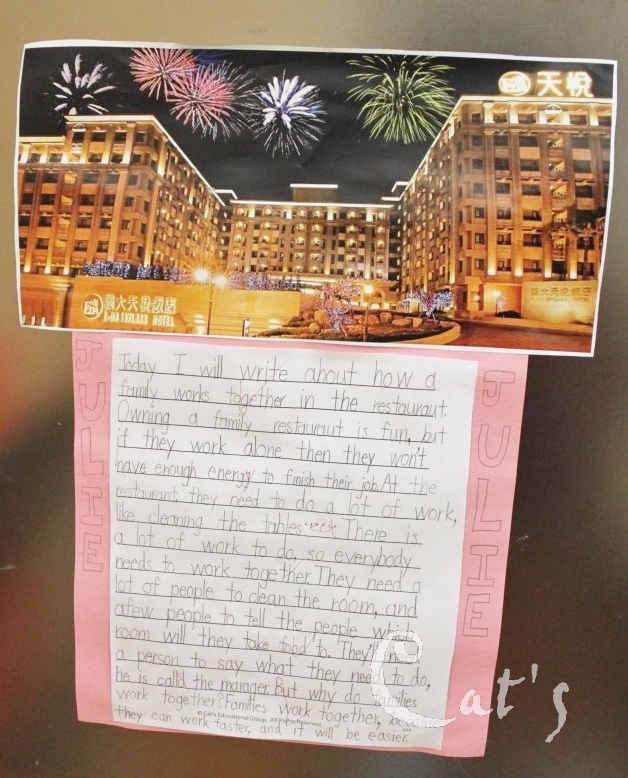 天悅
義大天悅飯店
E-DA SKYLARK HOTEL
義大天悅飯店
JULIE
JULIE
Today I will write about how a
family works together in the restaraut.
Owning a family restaraut is fun, but
if they work alone then they won't
have enough energy to finish their job.At the
restaurant they need to do a lot of work,
like cleaning the tables There is
a lot of work to do, so everybody
needs to work together.They need a
lot of people to clean the room, and
afew people to tell the people which
room will they take food to. They
a person to say what they need to do,
he is calld the manager.But why do families
work together?Families work together,
© Cat's Educational Group. All Rights Reserved.
they can work faster, and it will be easier.
Cat's